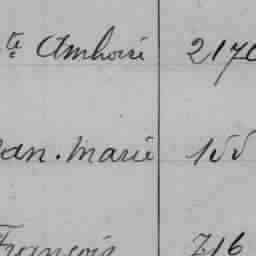 te Ambroise 2170
Jean. Marie 155
François 716